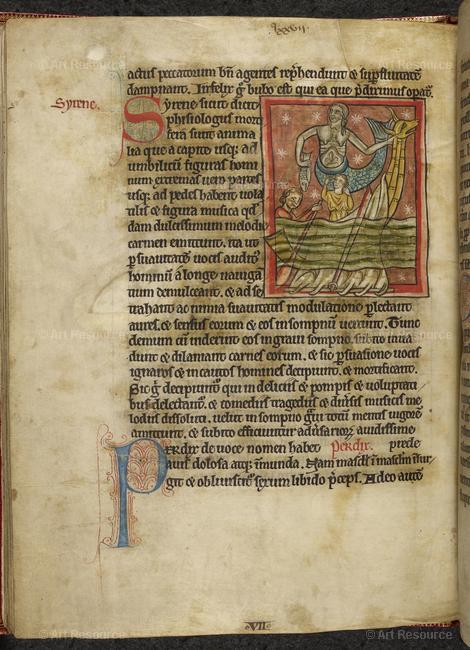 lxxvij
actus peccatorum bn̄ agentes rep̄hendunt et sup̄fluitatē
dampnant. Infelix ḡ bubo est qui ea que p̄diximus opat᷑.
Syrene.
Syrene sicut dicit
phisiologus mort
fera sunt anima
lia que a capite usq; ad
umbilicū figuras homi
num extremas uero partes
usq; ad pedes habent uola
tilis et figura musica qd̄
dam dulcissimum melodie
carmen emittunt. ita ut
p̄ suauitatē uoces auditꝰ
hominū a longe nauiga
tium demulceant. et ad se
trahant ac nimia suauitatis modulatione p̄lectant
aures. et sensus eorum et eos in sompnū uertunt. Tunc
demum cū uiderint eos in graui sompno. subito inua
dunt et dilaniant carnes eorum. et sic p̄suasione uocis
ignaros et incautos homines decipiunt. et mortificant.
Sic ḡ decipiuntᷣ qui in deliciis et pompis et uoluptati
bus delectantᷣ. et comediis tragediis et diuisis musicis me
lodiis dissoluti. uelut in sompno g̃ui totū mentis uigorē
amittunt. et subito efficiuntur aduersarioꝝ auidissime
Perdix de uoce nomen habet Perdix. prede
auis dolosa atq; inmunda. Nam masclꝰ ī masclm īsur/
git et obliuiscitᷣ sexum libido p̄ceps. Adeo autē
VII
© Art Resource
© Art Resource
© Art Resource
© Art Resource
© Art Resource
© Art Resource
© Art Resource
© Art Resource